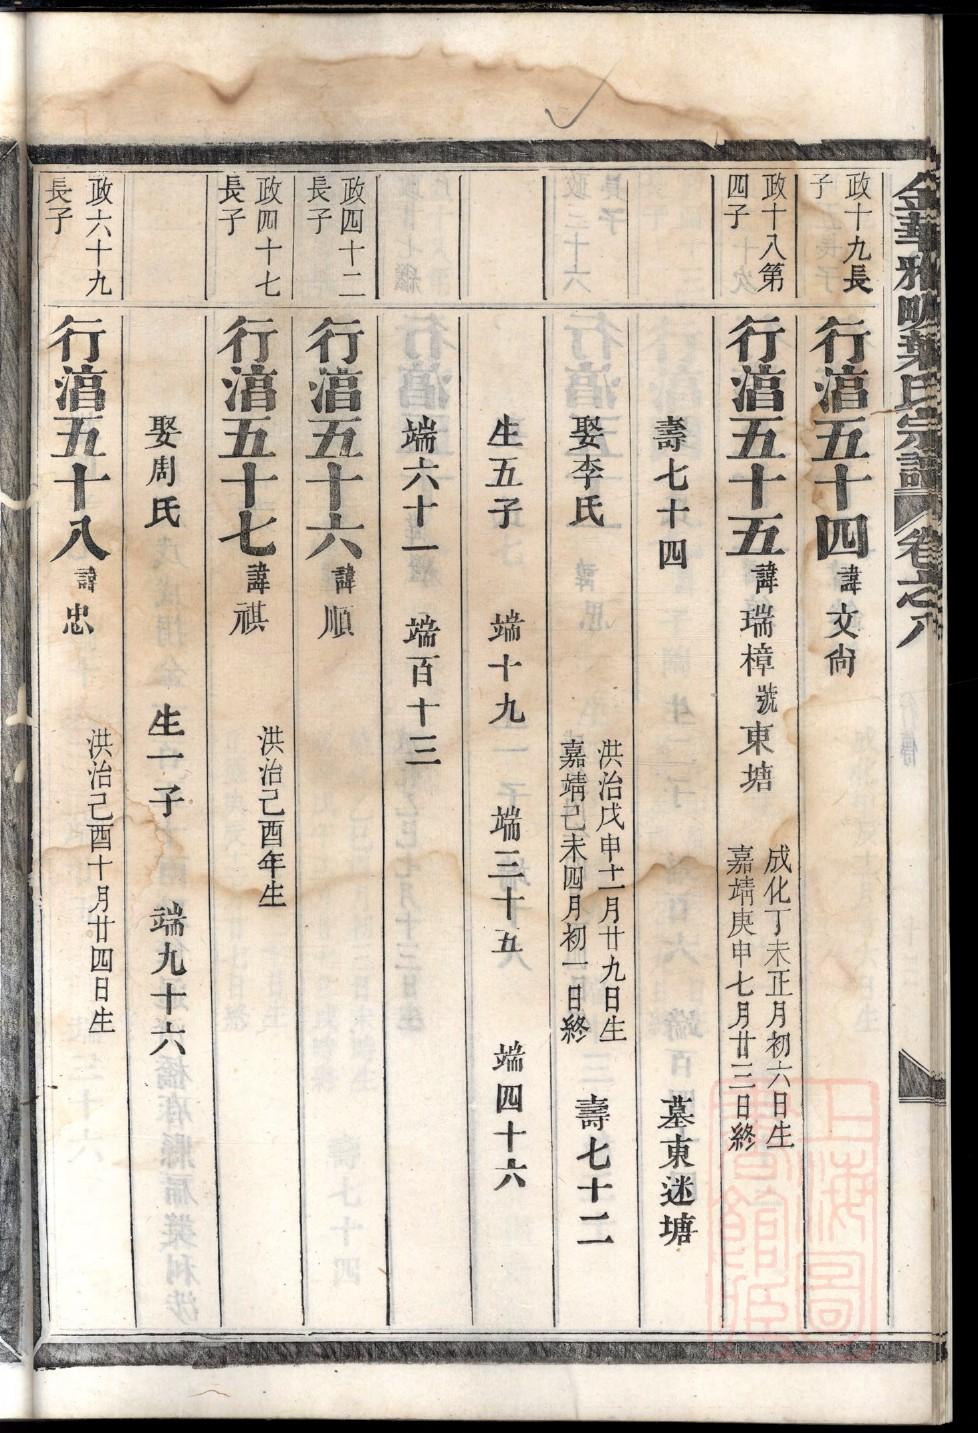 金華雅畈葉氏宗譜 卷之八
政十九長子
行湻五十四 諱文尙
政十八第四子
行湻五十五 諱瑞樟 號東塘 成化丁未正月初六日生 嘉靖庚申七月廿三日終
壽七十四 墓東迷塘
娶李氏 洪治戊申十一月廿九日生 嘉靖己未四月初一日終 壽七十二
生五子 端十九 端三十五 端四十六
端六十一 端百十三
政四十二長子
行湻五十六 諱順
政四十七長子
行湻五十七 諱祺 洪治己酉年生
娶周氏 生一子 端九十六
政六十九長子
行湻五十八 諱忠 洪治己酉十月廿四日生
上海圖書館藏